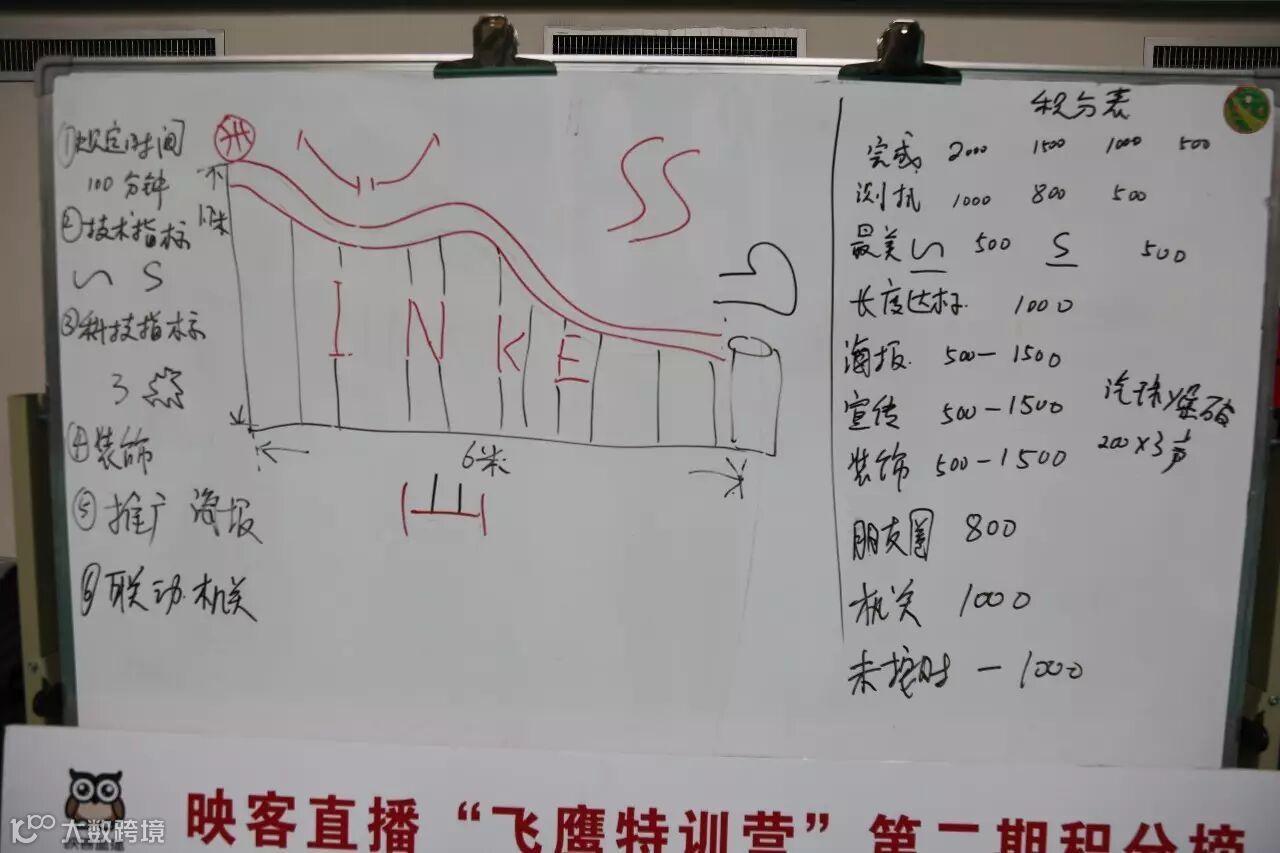 ①规定时间
100分钟
②技术指标
∽ S
③科技指标
3
④装饰
⑤推广海报
⑥联动机关
1米
SS
I N K E
6米
积分表
完成 2000 1500 1000 500
测机 1000 800 500
最美 ∽ 500 S 500
长度达标 1000
海报 500-1500
宣传 500-1500
装饰 500-1500
汽球爆破
200×3声
朋友圈 800
机关 1000
未按时 -1000
映客直播“飞鹰特训营”第二期积分榜
大数跨境